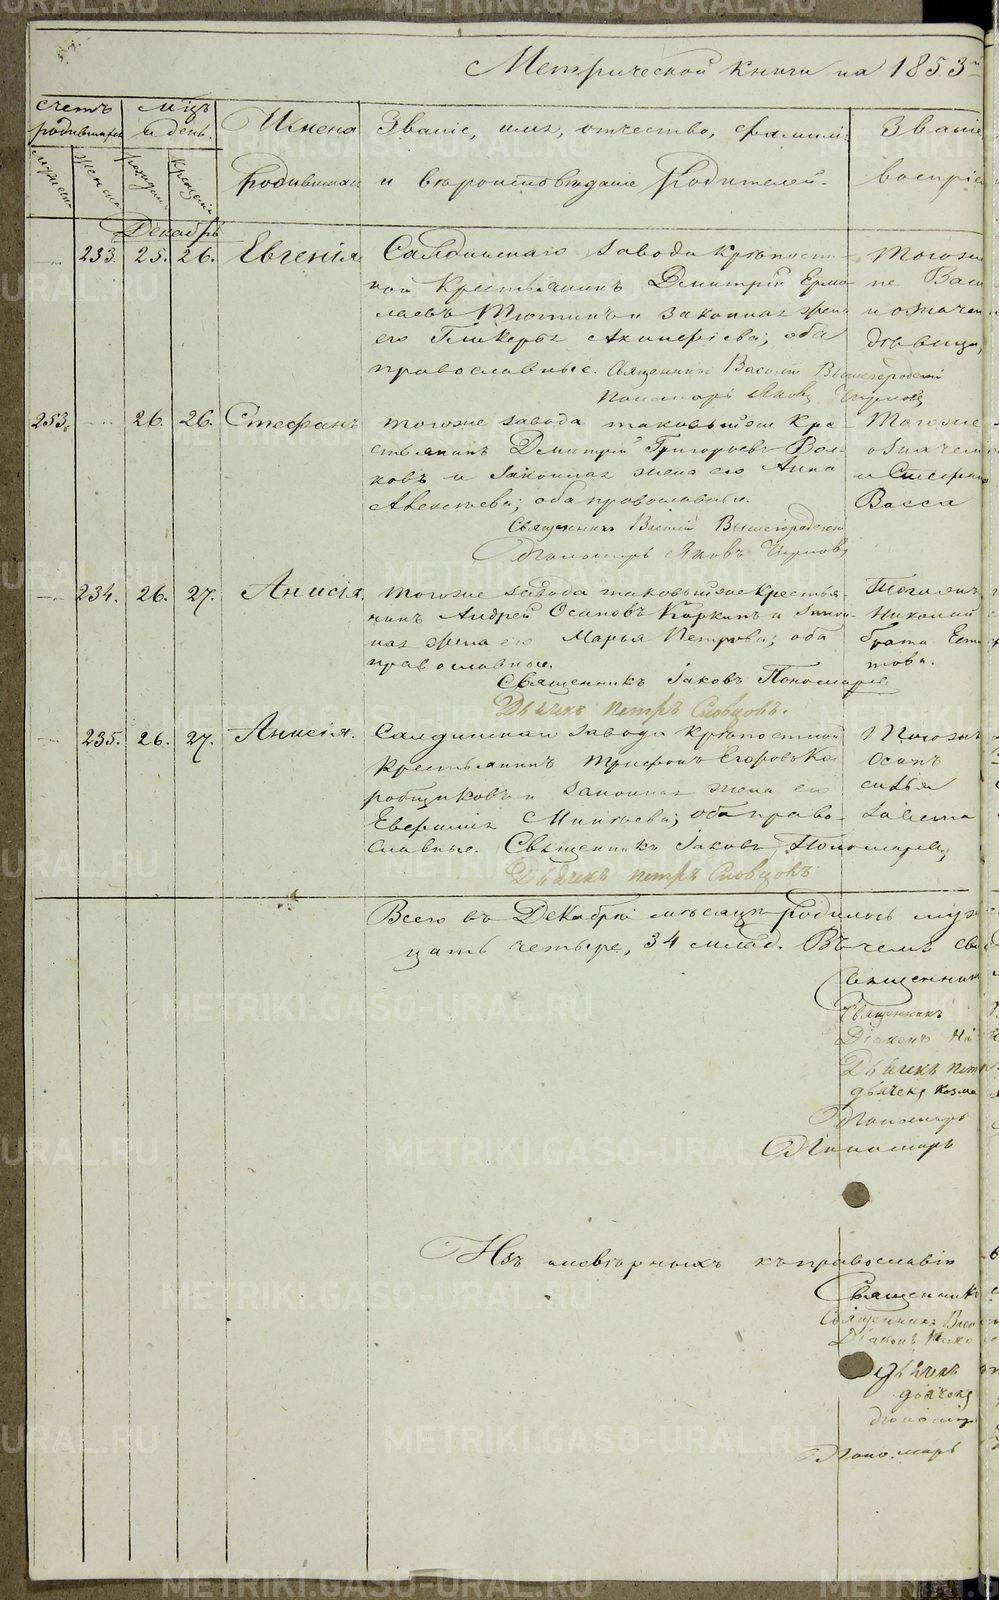 Метрической книги на 1853й
Счетъ родившихся
Мцъ и день.
Имена родившихся
Званіе, имя, отчество, фамилія и вѣроисповѣданіе родителей.
Званіе воспріе
Мужеска
Женска
рожденія
крещенія
Декабрь
233. 25. 26. Евгенія.
Салдинскаго завода крѣпост-
ной Крестьянинъ Димитрій Ермо-
лаевъ Тютинъ и законная жена
его Гликерья Акинфіева; оба
православные. Священникъ Василій Вышегородскій
Пономарь Яковъ Чирковъ
Тогоже
не Васи
и означен
дѣвица,
253. 26. 26. Стефанъ
тогоже завода таковыйже Кре-
стьянинъ Димитрій Григорьевъ Вол-
ковъ и законная жена его Анна
Алексѣева; оба православные.
Священникъ Василій Вышегородскій
Пономарь Яковъ Чирковъ
Тогоже
и Стефана
Васса
234. 26. 27. Анисія.
тогоже завода таковыйже Крестья-
нинъ Андрей Осиповъ Коркинъ и закон-
ная жена его Марья Петрова; оба
православные.
Священникъ Іаковъ Пономаревъ
Дьячекъ Петръ Словцовъ.
Николай
брата
това.
235. 26. 27. Анисія.
Салдинскаго завода крѣпостной
Крестьянинъ Трифонъ Егоровъ Ко-
робщиковъ и законная жена его
Евфимія Минѣева; оба право-
славные. Священникъ Іаковъ Пономаревъ
Дьячекъ Петръ Словцовъ
Осипъ
Всего въ Декабрѣ мѣсяцѣ родилось муж
цать четыре, 34 млад. Въ чемъ сви
Священник
Священникъ
Діаконъ Ни
Дьячекъ Петр
дьячекъ Козма
Пономарь
Пономарь
Изъ иновѣрныхъ къ православію
Священникъ
Священникъ Васи
Діаконъ Нико
Дьячекъ
дьячекъ
Пономар
Пономарь
METRIKI.GASO-URAL.RU